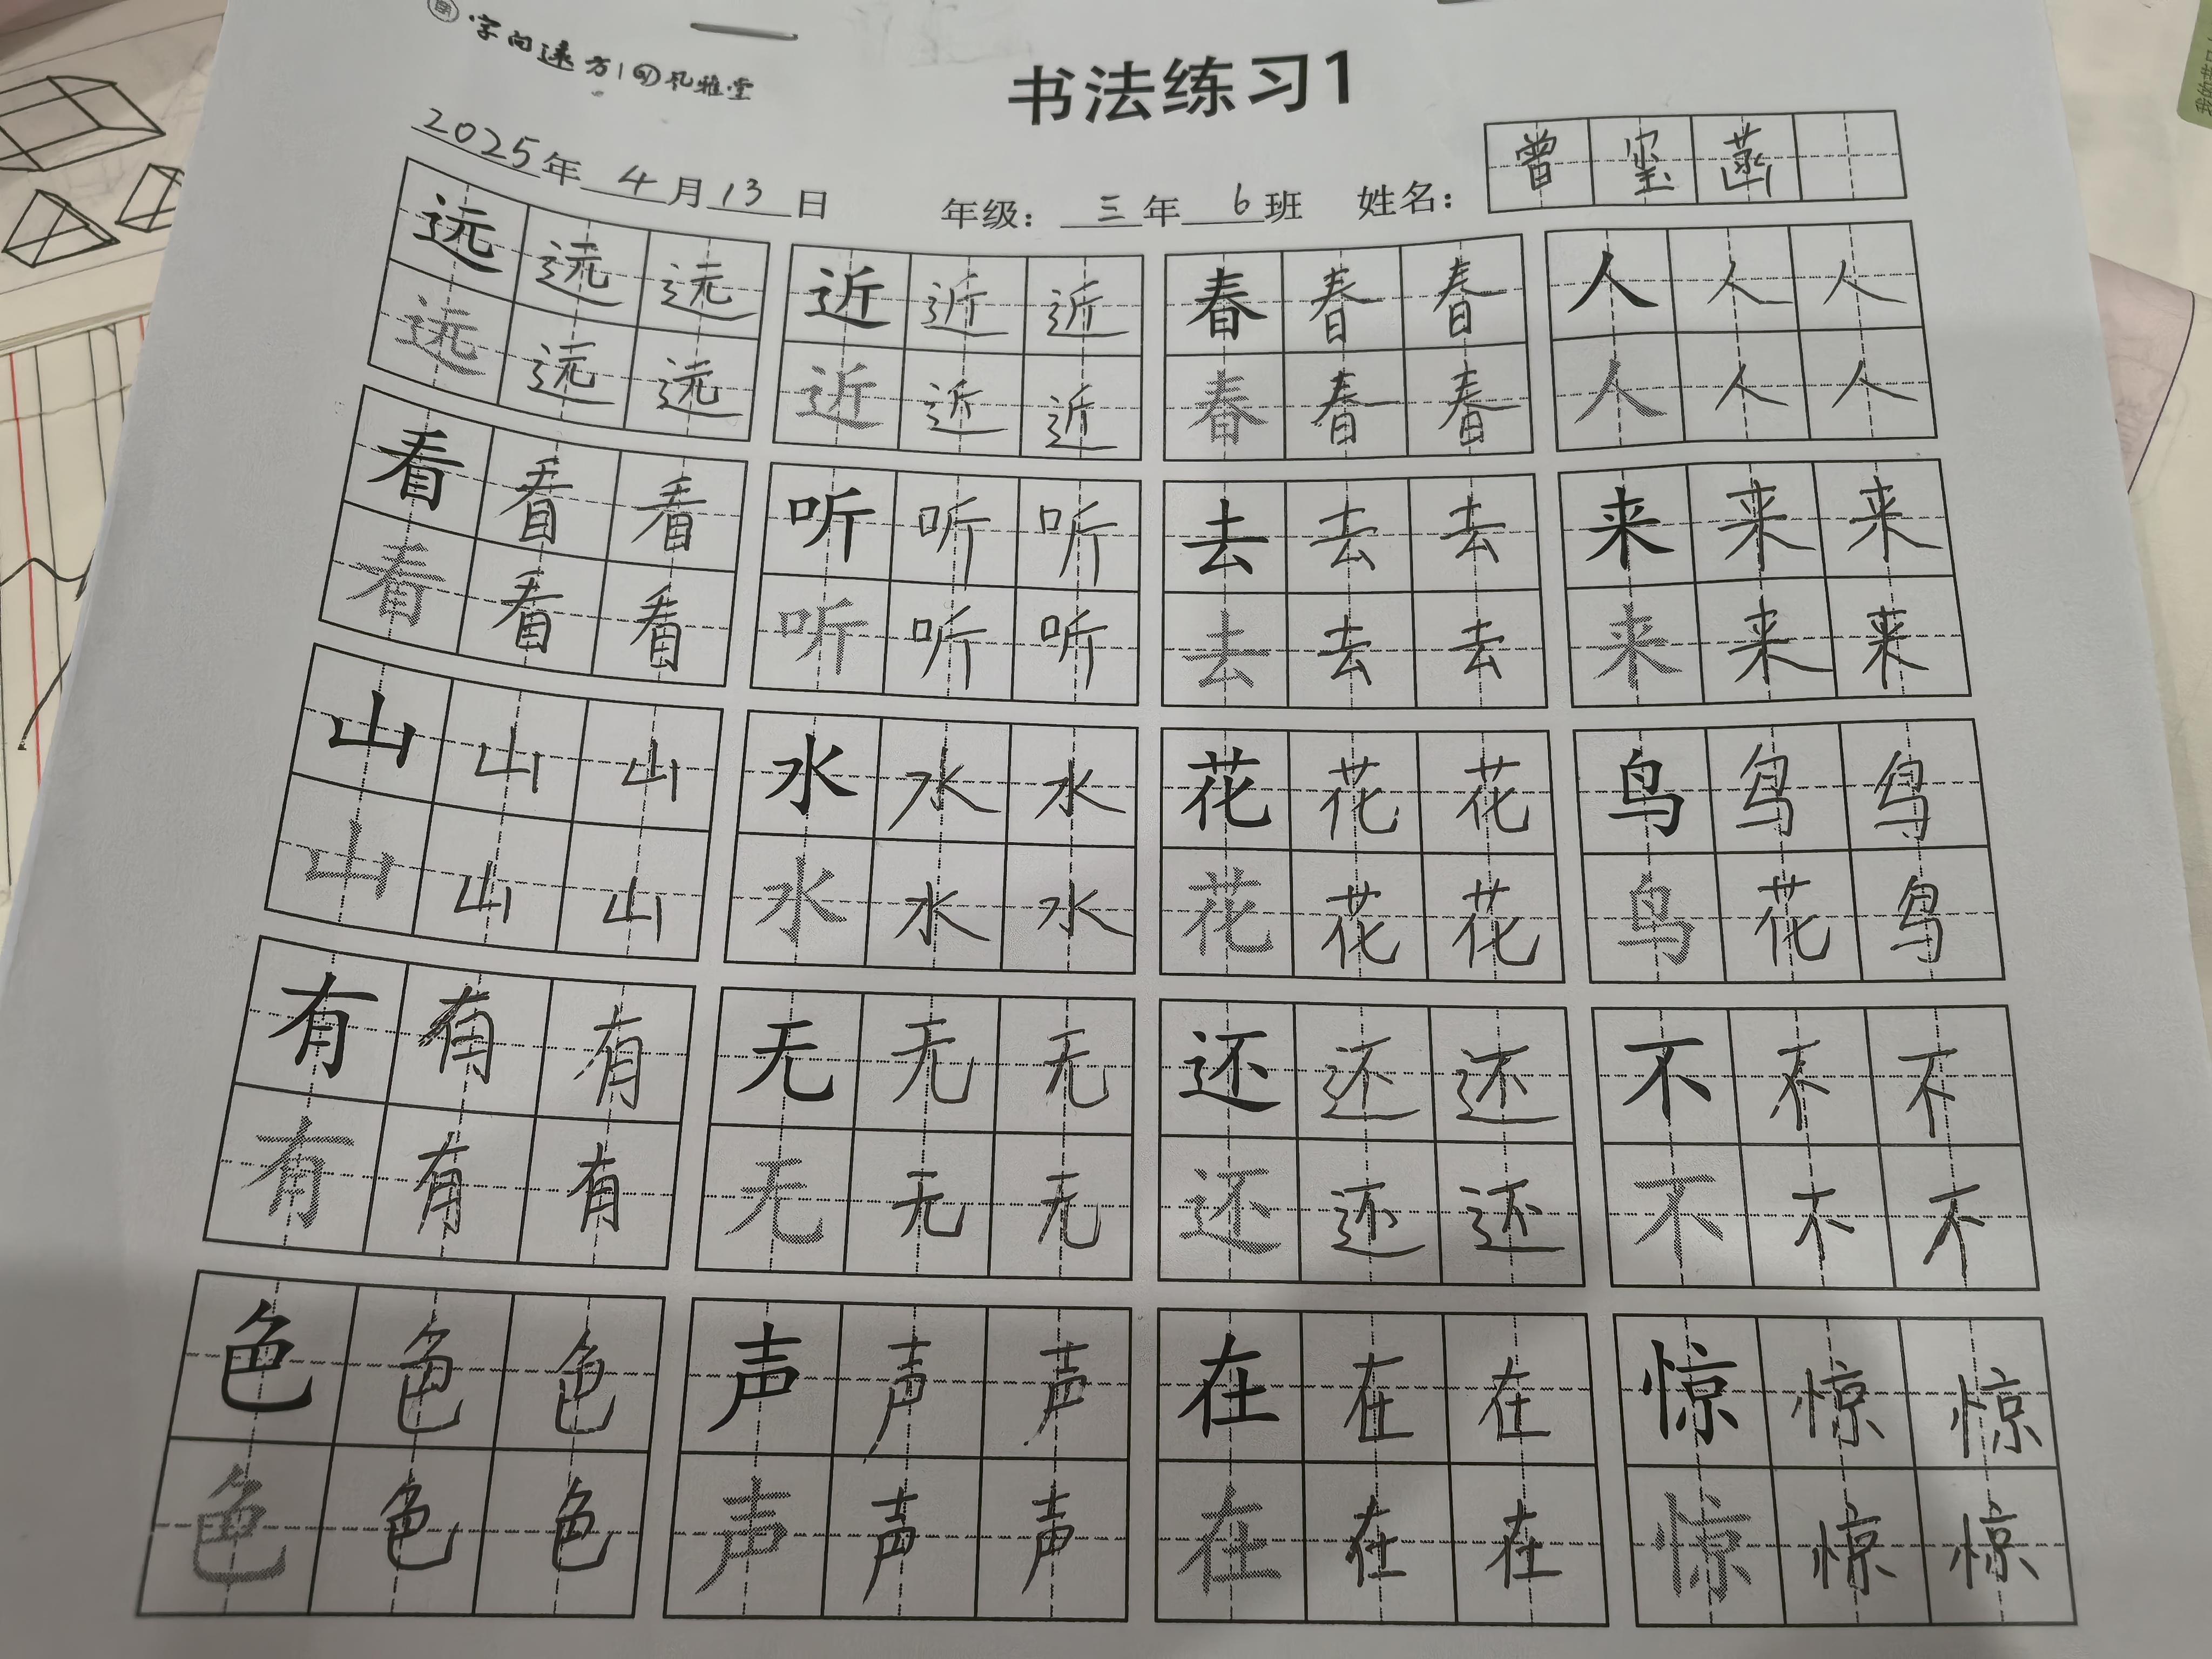 字向远方
书法练习1
2025年4月13日 年级：三年6班 姓名：曾玺菡
远远远 近近近 春春春 人人人
远远远 近近近 春春春 人人人
看看看 听听听 去去去 来来来
看看看 听听听 去去去 来来来
山山山 水水水 花花花 鸟鸟鸟
山山山 水水水 花花花 鸟花鸟
有有有 无无无 还还还 不不不
有有有 无无无 还还还 不不不
色色色 声声声 在在在 惊惊惊
色色色 声声声 在在在 惊惊惊